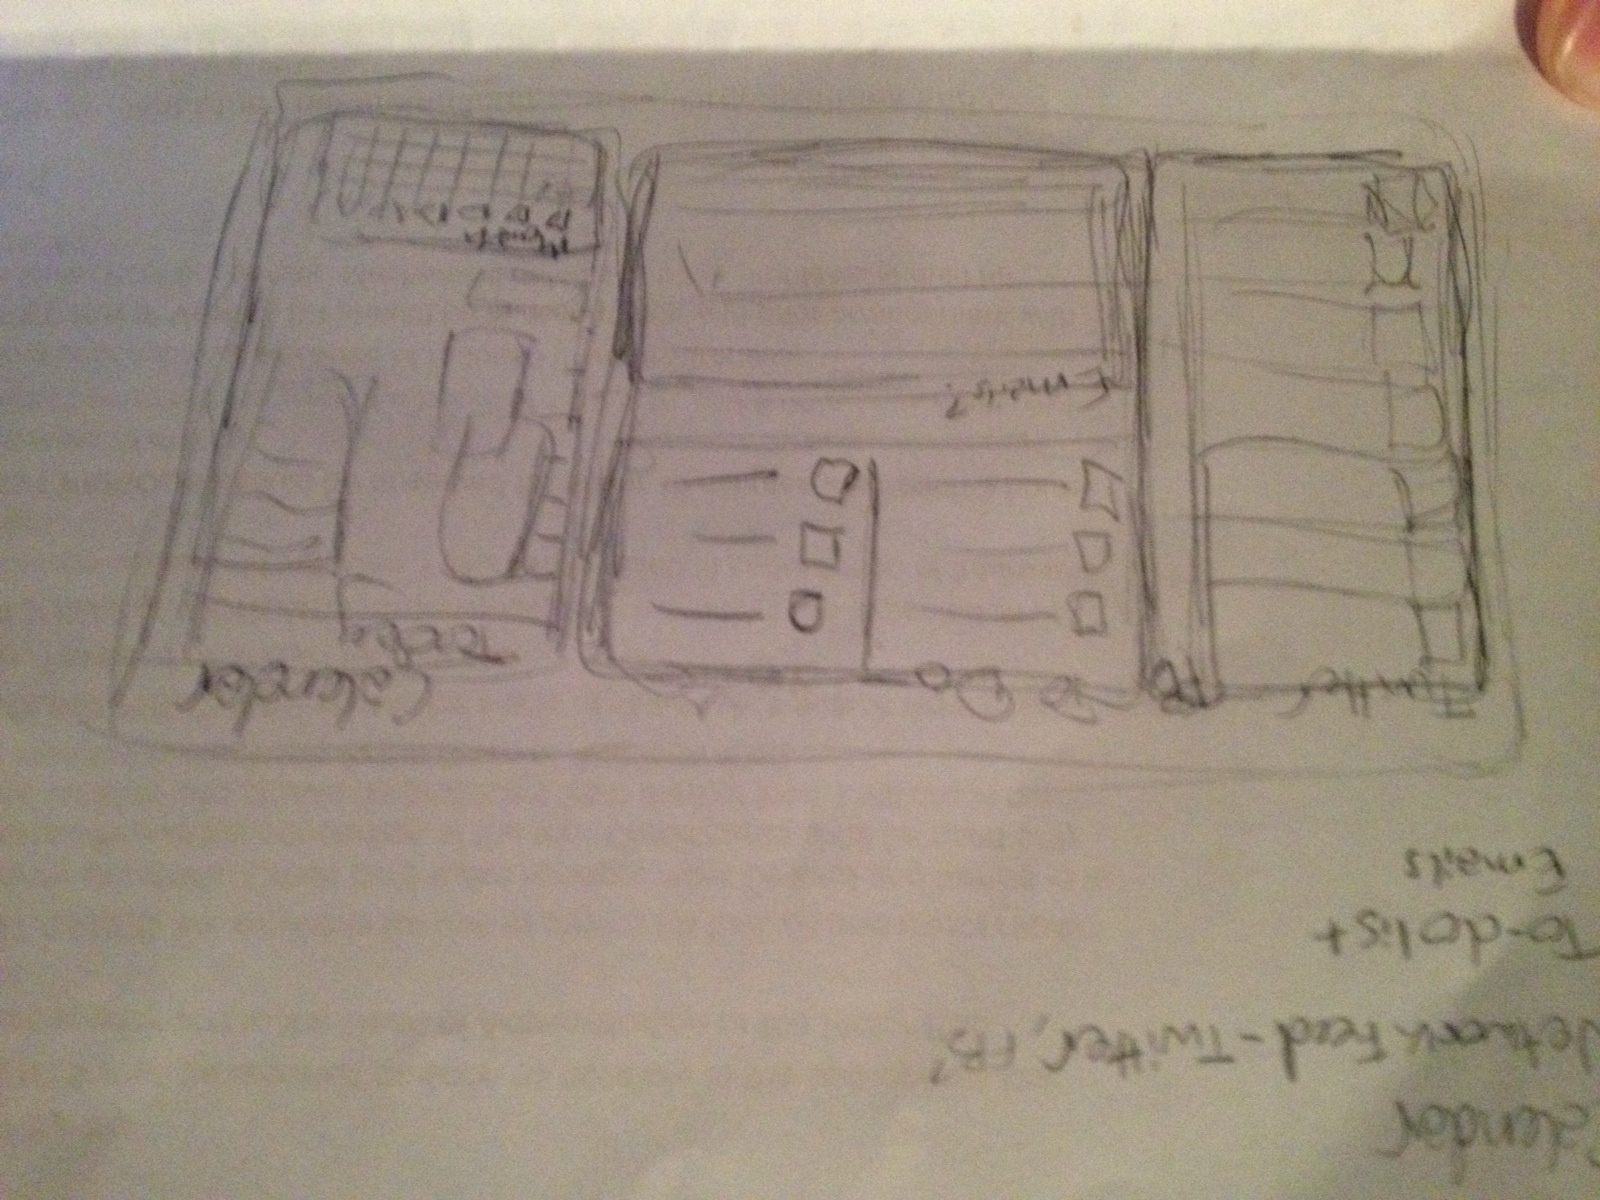 Calendar
Network Feed - Twitter, FB?
To-do list
Emails
Twitter FB To Do Calendar
Today
Emails?
Month